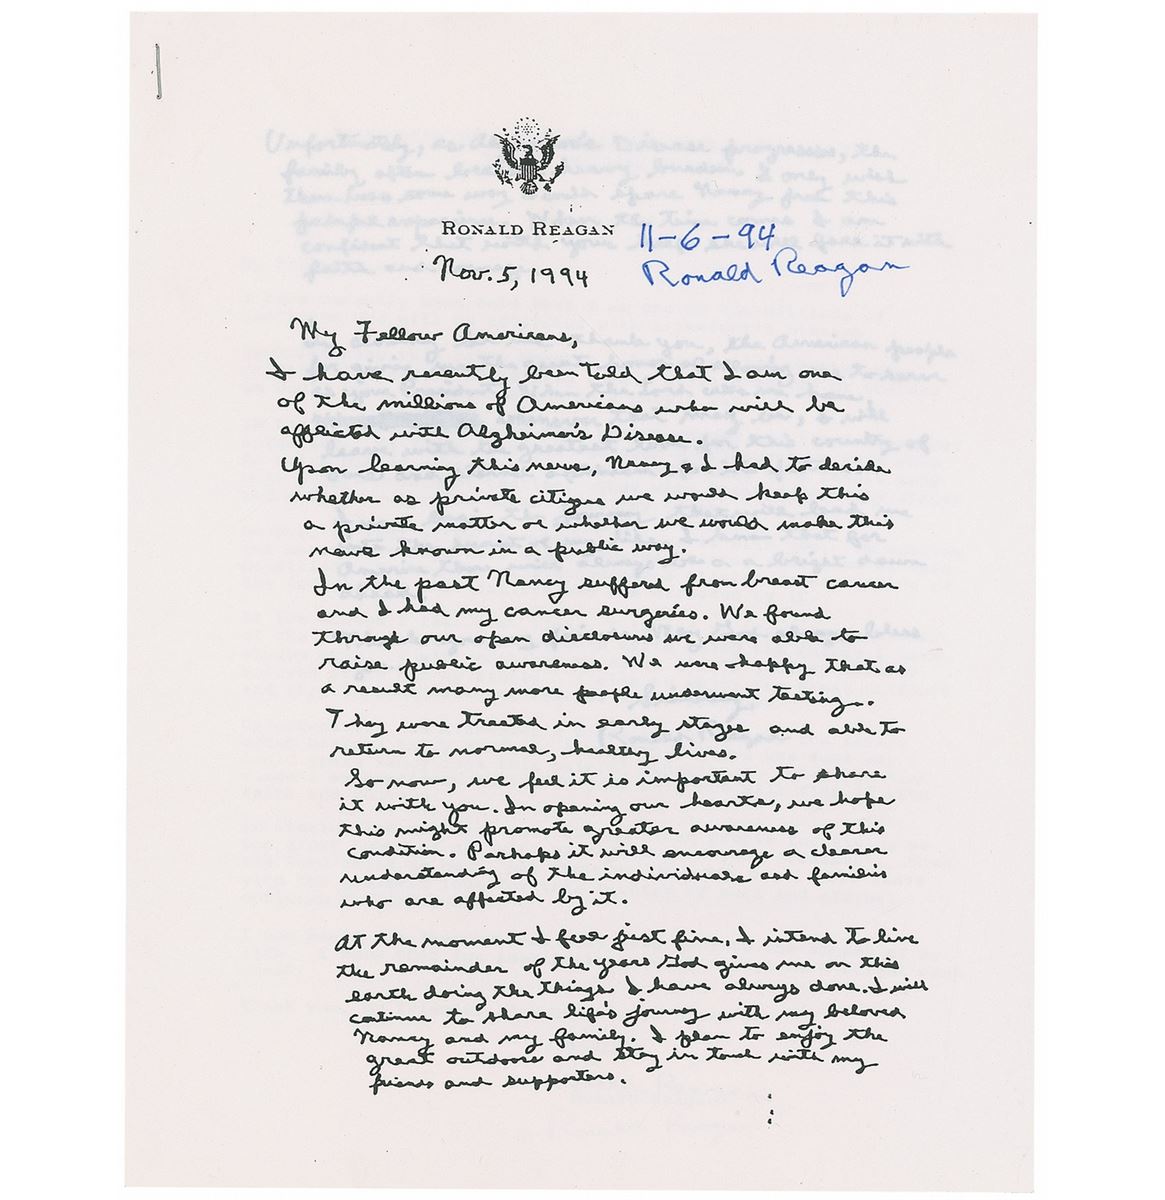 RONALD REAGAN
11-6-94
Nov. 5, 1994
Ronald Reagan
My Fellow Americans,
I have recently been told that I am one
of the millions of Americans who will be
afflicted with Alzheimer's Disease.
Upon learning this news, Nancy & I had to decide
whether as private citizens we would keep this
a private matter or whether we would make this
news known in a public way.
In the past Nancy suffered from breast cancer
and I had my cancer surgeries. We found
through our open disclosures we were able to
raise public awareness. We were happy that as
a result many more people underwent testing.
They were treated in early stages and able to
return to normal, healthy lives.
So now, we feel it is important to share
it with you. In opening our hearts, we hope
this might promote greater awareness of this
condition. Perhaps it will encourage a clearer
understanding of the individuals and families
who are affected by it.
At the moment I feel just fine. I intend to live
the remainder of the years God gives me on this
earth doing the things I have always done. I will
continue to share life's journey with my beloved
Nancy and my family. I plan to enjoy the
great outdoors and stay in touch with my
friends and supporters.